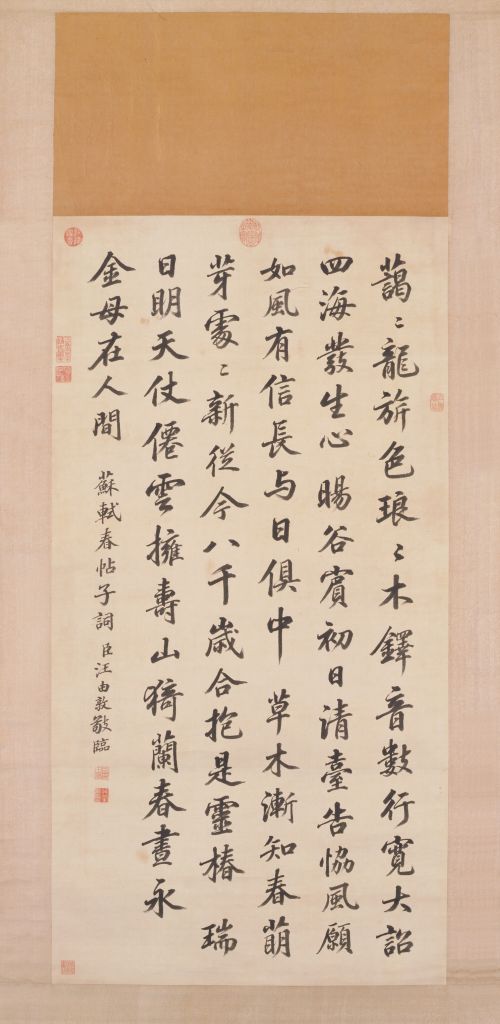 藹〻龍旂色琅〻木鐸音數行寬大詔
四海發生心暘谷賓初日清臺告協風願
如風有信長与日俱中 草木漸知春萠
芽處〻新從今八千歲合抱是靈椿 瑞
日明天仗僊雲擁壽山猗蘭春晝永
金母在人間 蘇軾春帖子詞 臣汪由敦敬臨